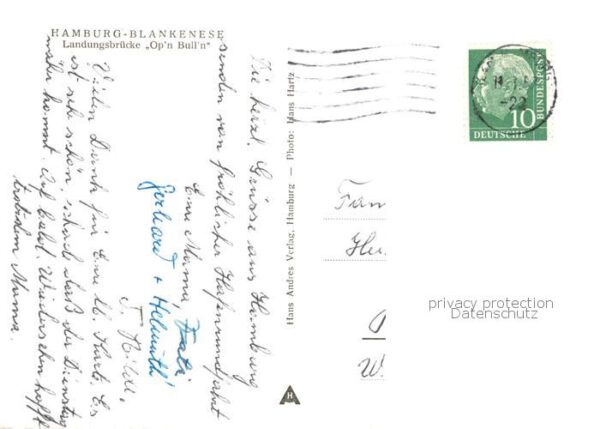 HAMBURG-BLANKENESE
Landungsbrücke „Op'n Bull'n"
Die herzl. Grüsse aus Hamburg
senden von fröhlicher Hafenrundfahrt
Eure Mama
Gerhard + Helmuth
Vielen Dank für Eure lb. Karte. Es
ist sehr schön, schade daß der Dienstag
näher kommt. Auf bald. Wiedersehen hofft
trotzdem Mama.
Hans Andres Verlag, Hamburg — Photo: Hans Hartz
H
10
DEUTSCHE
BUNDESPOST
Fam
W.
privacy protection
Datenschutz